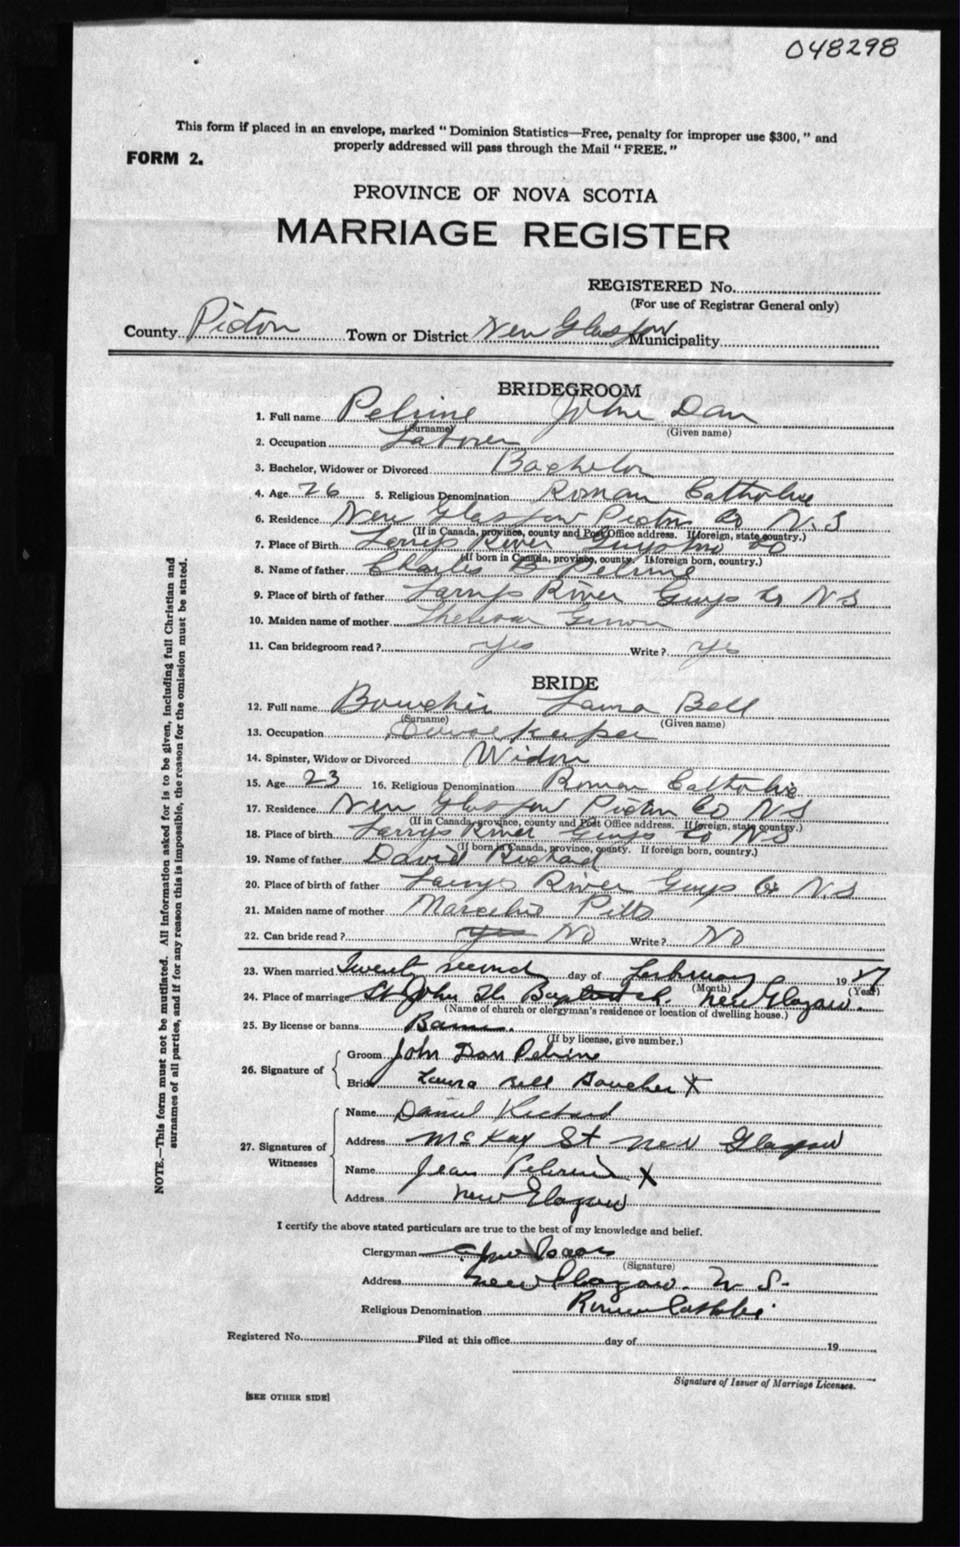 048298
This form if placed in an envelope, marked "Dominion Statistics—Free, penalty for improper use $300," and
properly addressed will pass through the Mail "FREE."
FORM 2.
PROVINCE OF NOVA SCOTIA
MARRIAGE REGISTER
REGISTERED No.
(For use of Registrar General only)
County Pictou Town or District New Glasgow Municipality
BRIDEGROOM
1. Full name Pelrine John Dan
(Surname) (Given name)
2. Occupation Laborer
3. Bachelor, Widower or Divorced Bachelor
4. Age 26 5. Religious Denomination Roman Catholic
6. Residence New Glasgow Pictou Co N.S
(If in Canada, province, county and Post Office address. If foreign, state country.)
7. Place of Birth Larrys River Guys Co
(If born in Canada, province, county. If foreign born, country.)
8. Name of father Charles B Pelrine
9. Place of birth of father Larrys River Guys Co NS
10. Maiden name of mother
11. Can bridegroom read? yes Write? yes
BRIDE
12. Full name Bouchie Laura Bell
(Surname) (Given name)
13. Occupation House Keeper
14. Spinster, Widow or Divorced Widow
15. Age 23 16. Religious Denomination Roman Catholic
17. Residence New Glasgow Pictou Co NS
(If in Canada, province, county and Post Office address. If foreign, state country.)
18. Place of birth Larrys River Guys Co NS
(If born in Canada, province, county. If foreign born, country.)
19. Name of father David Richard
20. Place of birth of father Larrys River Guys Co N.S
21. Maiden name of mother Pitts
22. Can bride read? yes No Write? No
23. When married Twenty second day of February 1927
(Month) (Year)
24. Place of marriage St John The Baptist Ch. New Glasgow.
(Name of church or clergyman's residence or location of dwelling house.)
25. By license or banns Banns.
(If by license, give number.)
26. Signature of
Groom John Dan Pelrine
Bride Laura Bell Boucher X
27. Signatures of Witnesses
Name Daniel Richard
Address McKay St New Glasgow
Name Jean Pelrine X
Address New Glasgow
I certify the above stated particulars are true to the best of my knowledge and belief.
Clergyman
(Signature)
Address New Glasgow. N S.
Religious Denomination Roman Catholic
Registered No. Filed at this office day of 19
Signature of Issuer of Marriage Licenses.
[SEE OTHER SIDE]
NOTE.—This form must not be mutilated. All information asked for is to be given, including full Christian and
surnames of all parties, and if for any reason this is impossible, the reason for the omission must be stated.